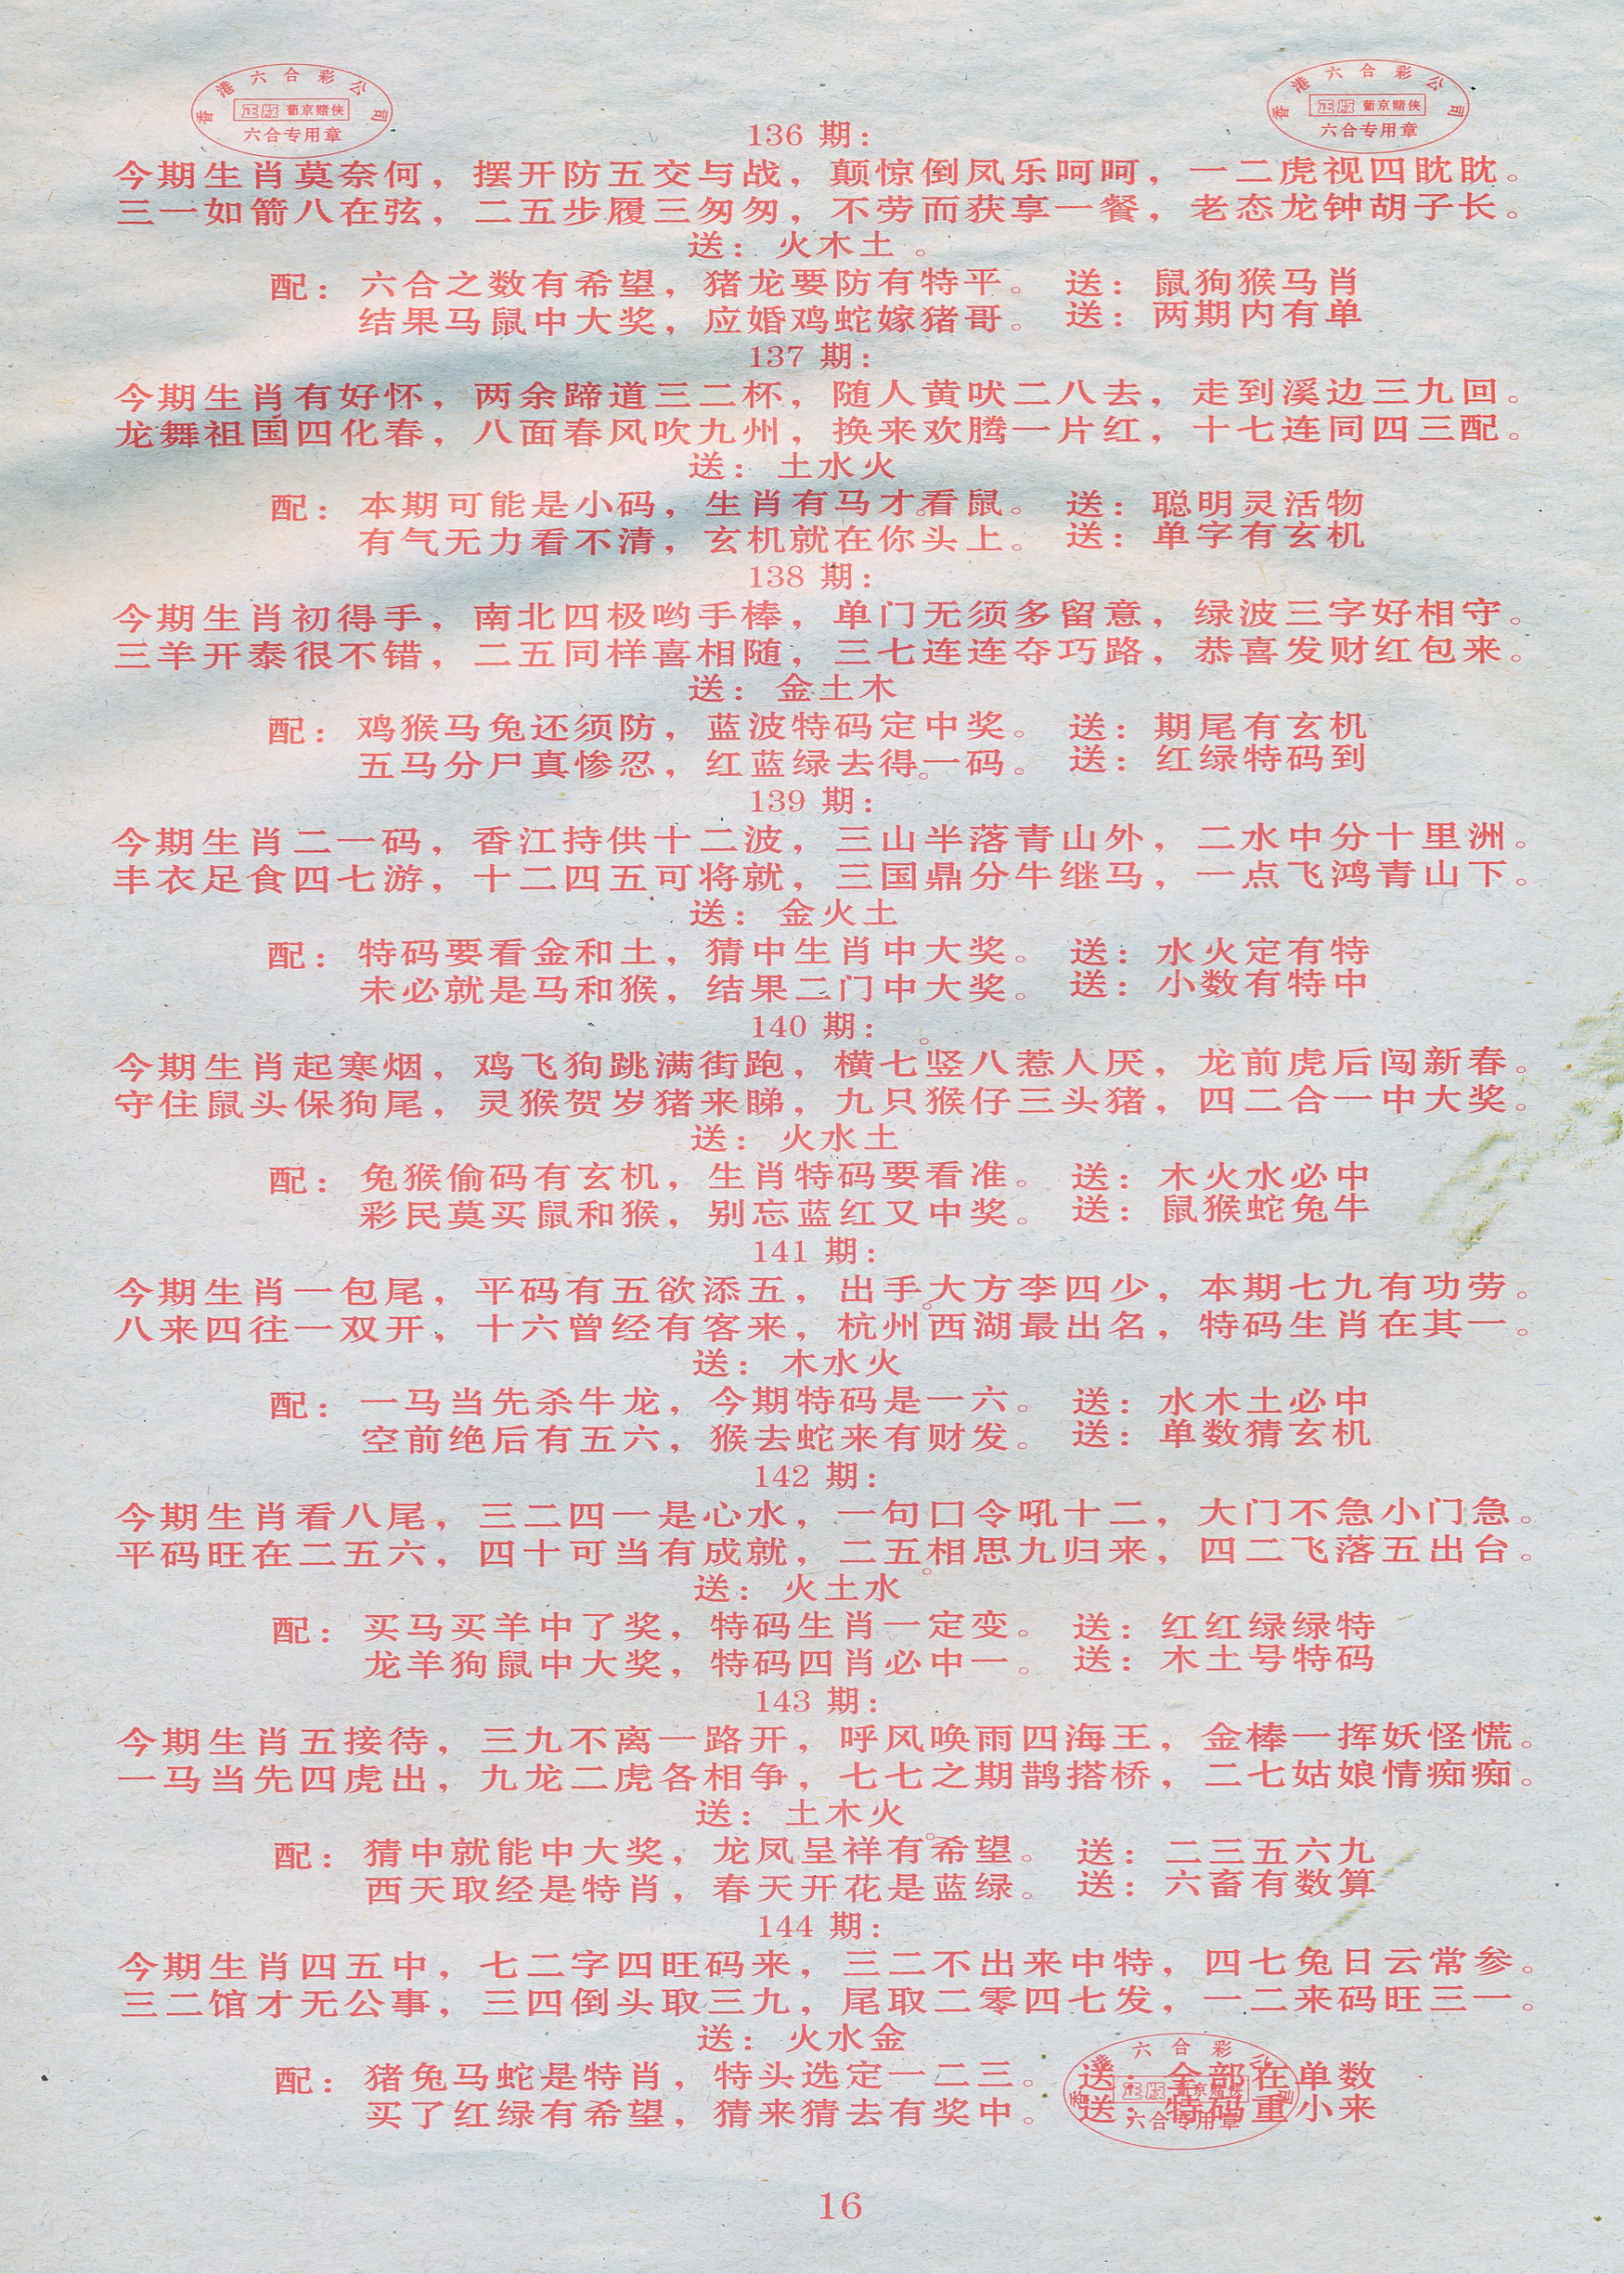 香港六合彩公司
正版 葡京赌侠
六合专用章
香港六合彩公司
正版 葡京赌侠
六合专用章
136 期：
今期生肖莫奈何，摆开防五交与战，颠惊倒凤乐呵呵，一二虎视四眈眈。
三一如箭八在弦，二五步履三匆匆，不劳而获享一餐，老态龙钟胡子长。
送：火木土。
配：六合之数有希望，猪龙要防有特平。送：鼠狗猴马肖
结果马鼠中大奖，应婚鸡蛇嫁猪哥。送：两期内有单
137 期：
今期生肖有好怀，两余蹄道三二杯，随人黄吠二八去，走到溪边三九回。
龙舞祖国四化春，八面春风吹九州，换来欢腾一片红，十七连同四三配。
送：土水火
配：本期可能是小码，生肖有马才看鼠。送：聪明灵活物
有气无力看不清，玄机就在你头上。送：单字有玄机
138 期：
今期生肖初得手，南北四极哟手棒，单门无须多留意，绿波三字好相守。
三羊开泰很不错，二五同样喜相随，三七连连夺巧路，恭喜发财红包来。
送：金土木
配：鸡猴马兔还须防，蓝波特码定中奖。送：期尾有玄机
五马分尸真惨忍，红蓝绿去得一码。送：红绿特码到
139 期：
今期生肖二一码，香江持供十二波，三山半落青山外，二水中分十里洲。
丰衣足食四七游，十二四五可将就，三国鼎分牛继马，一点飞鸿青山下。
送：金火土
配：特码要看金和土，猜中生肖中大奖。送：水火定有特
未必就是马和猴，结果二门中大奖。送：小数有特中
140 期：
今期生肖起寒烟，鸡飞狗跳满街跑，横七竖八惹人厌，龙前虎后闯新春。
守住鼠头保狗尾，灵猴贺岁猪来睇，九只猴仔三头猪，四二合一中大奖。
送：火水土
配：兔猴偷码有玄机，生肖特码要看准。送：木火水必中
彩民莫买鼠和猴，别忘蓝红又中奖。送：鼠猴蛇兔牛
141 期：
今期生肖一包尾，平码有五欲添五，出手大方李四少，本期七九有功劳。
八来四往一双开，十六曾经有客来，杭州西湖最出名，特码生肖在其一。
送：木水火
配：一马当先杀牛龙，今期特码是一六。送：水木土必中
空前绝后有五六，猴去蛇来有财发。送：单数猜玄机
142 期：
今期生肖看八尾，三二四一是心水，一句口令吼十二，大门不急小门急。
平码旺在二五六，四十可当有成就，二五相思九归来，四二飞落五出台。
送：火土水
配：买马买羊中了奖，特码生肖一定变。送：红红绿绿特
龙羊狗鼠中大奖，特码四肖必中一。送：木土号特码
143 期：
今期生肖五接待，三九不离一路开，呼风唤雨四海王，金棒一挥妖怪慌。
一马当先四虎出，九龙二虎各相争，七七之期鹊搭桥，二七姑娘情痴痴。
送：土木火
配：猜中就能中大奖，龙凤呈祥有希望。送：二三五六九
西天取经是特肖，春天开花是蓝绿。送：六畜有数算
144 期：
今期生肖四五中，七二字四旺码来，三二不出来中特，四七兔日云常参。
三二馆才无公事，三四倒头取三九，尾取二零四七发，一二来码旺三一。
送：火水金
配：猪兔马蛇是特肖，特头选定一二三。送：全部在单数
买了红绿有希望，猜来猜去有奖中。送：特码重小来
香港六合彩公司
正版 葡京赌侠
六合专用章
16